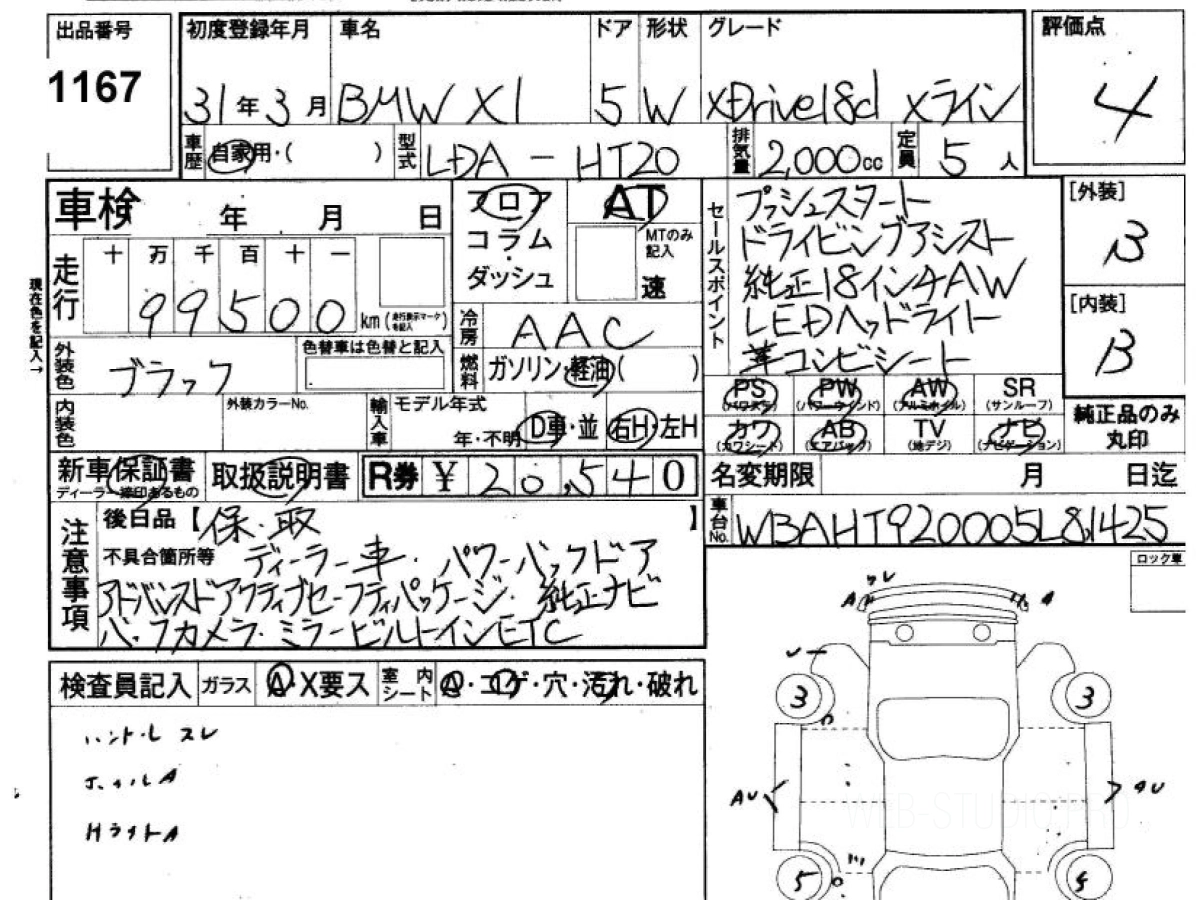 出品番号
1167
初度登録年月
31年3月
車名
BMW X1
ドア
5
形状
W
グレード
xDrive18d xライン
評価点
4
車歴
自家用・( )
型式
LDA - HT20
排気量
2,000cc
定員
5人
車検 年 月 日
フロア
コラム
・
ダッシュ
AT
MTのみ
記入
速
セールスポイント
プッシュスタート
ドライビングアシスト
純正18インチAW
LEDヘッドライト
革コンビシート
[外装]
B
[内装]
B
現在色を記入→
走行
十 万 千 百 十 一
99500
km(走行表示マークを記入)
冷房
AAC
燃料
ガソリン・軽油( )
外装色
ブラック
色替車は色替と記入
内装色
外装カラーNo.
輸入車
モデル年式
年・不明
D車・並
右H・左H
PS
(パワステ)
PW
(パワーウインド)
AW
(アルミホイル)
SR
(サンルーフ)
カワ
(カワシート)
AB
(エアバッグ)
TV
(地デジ)
ナビ
(ナビゲーション)
純正品のみ
丸印
新車保証書
ディーラー捺印あるもの
取扱説明書
R券 ¥ 20,540
名変期限 月 日迄
車台No.
WBAHT920005L81425
注意事項
後日品【保・取 】
不具合箇所等 ディーラー車・パワーバックドア
アドバンスドアクティブセーフティパッケージ・純正ナビ
バックカメラ・ミラービルトインETC
ロック車
検査員記入
ガラス
A・X要ス
室内
シート
A・コゲ・穴・汚れ・破れ
ハンドル スレ
ホイルA
HライトA
ワレ
A
A
3
3
AU
AU
5
WEB-STUDIO.PRO